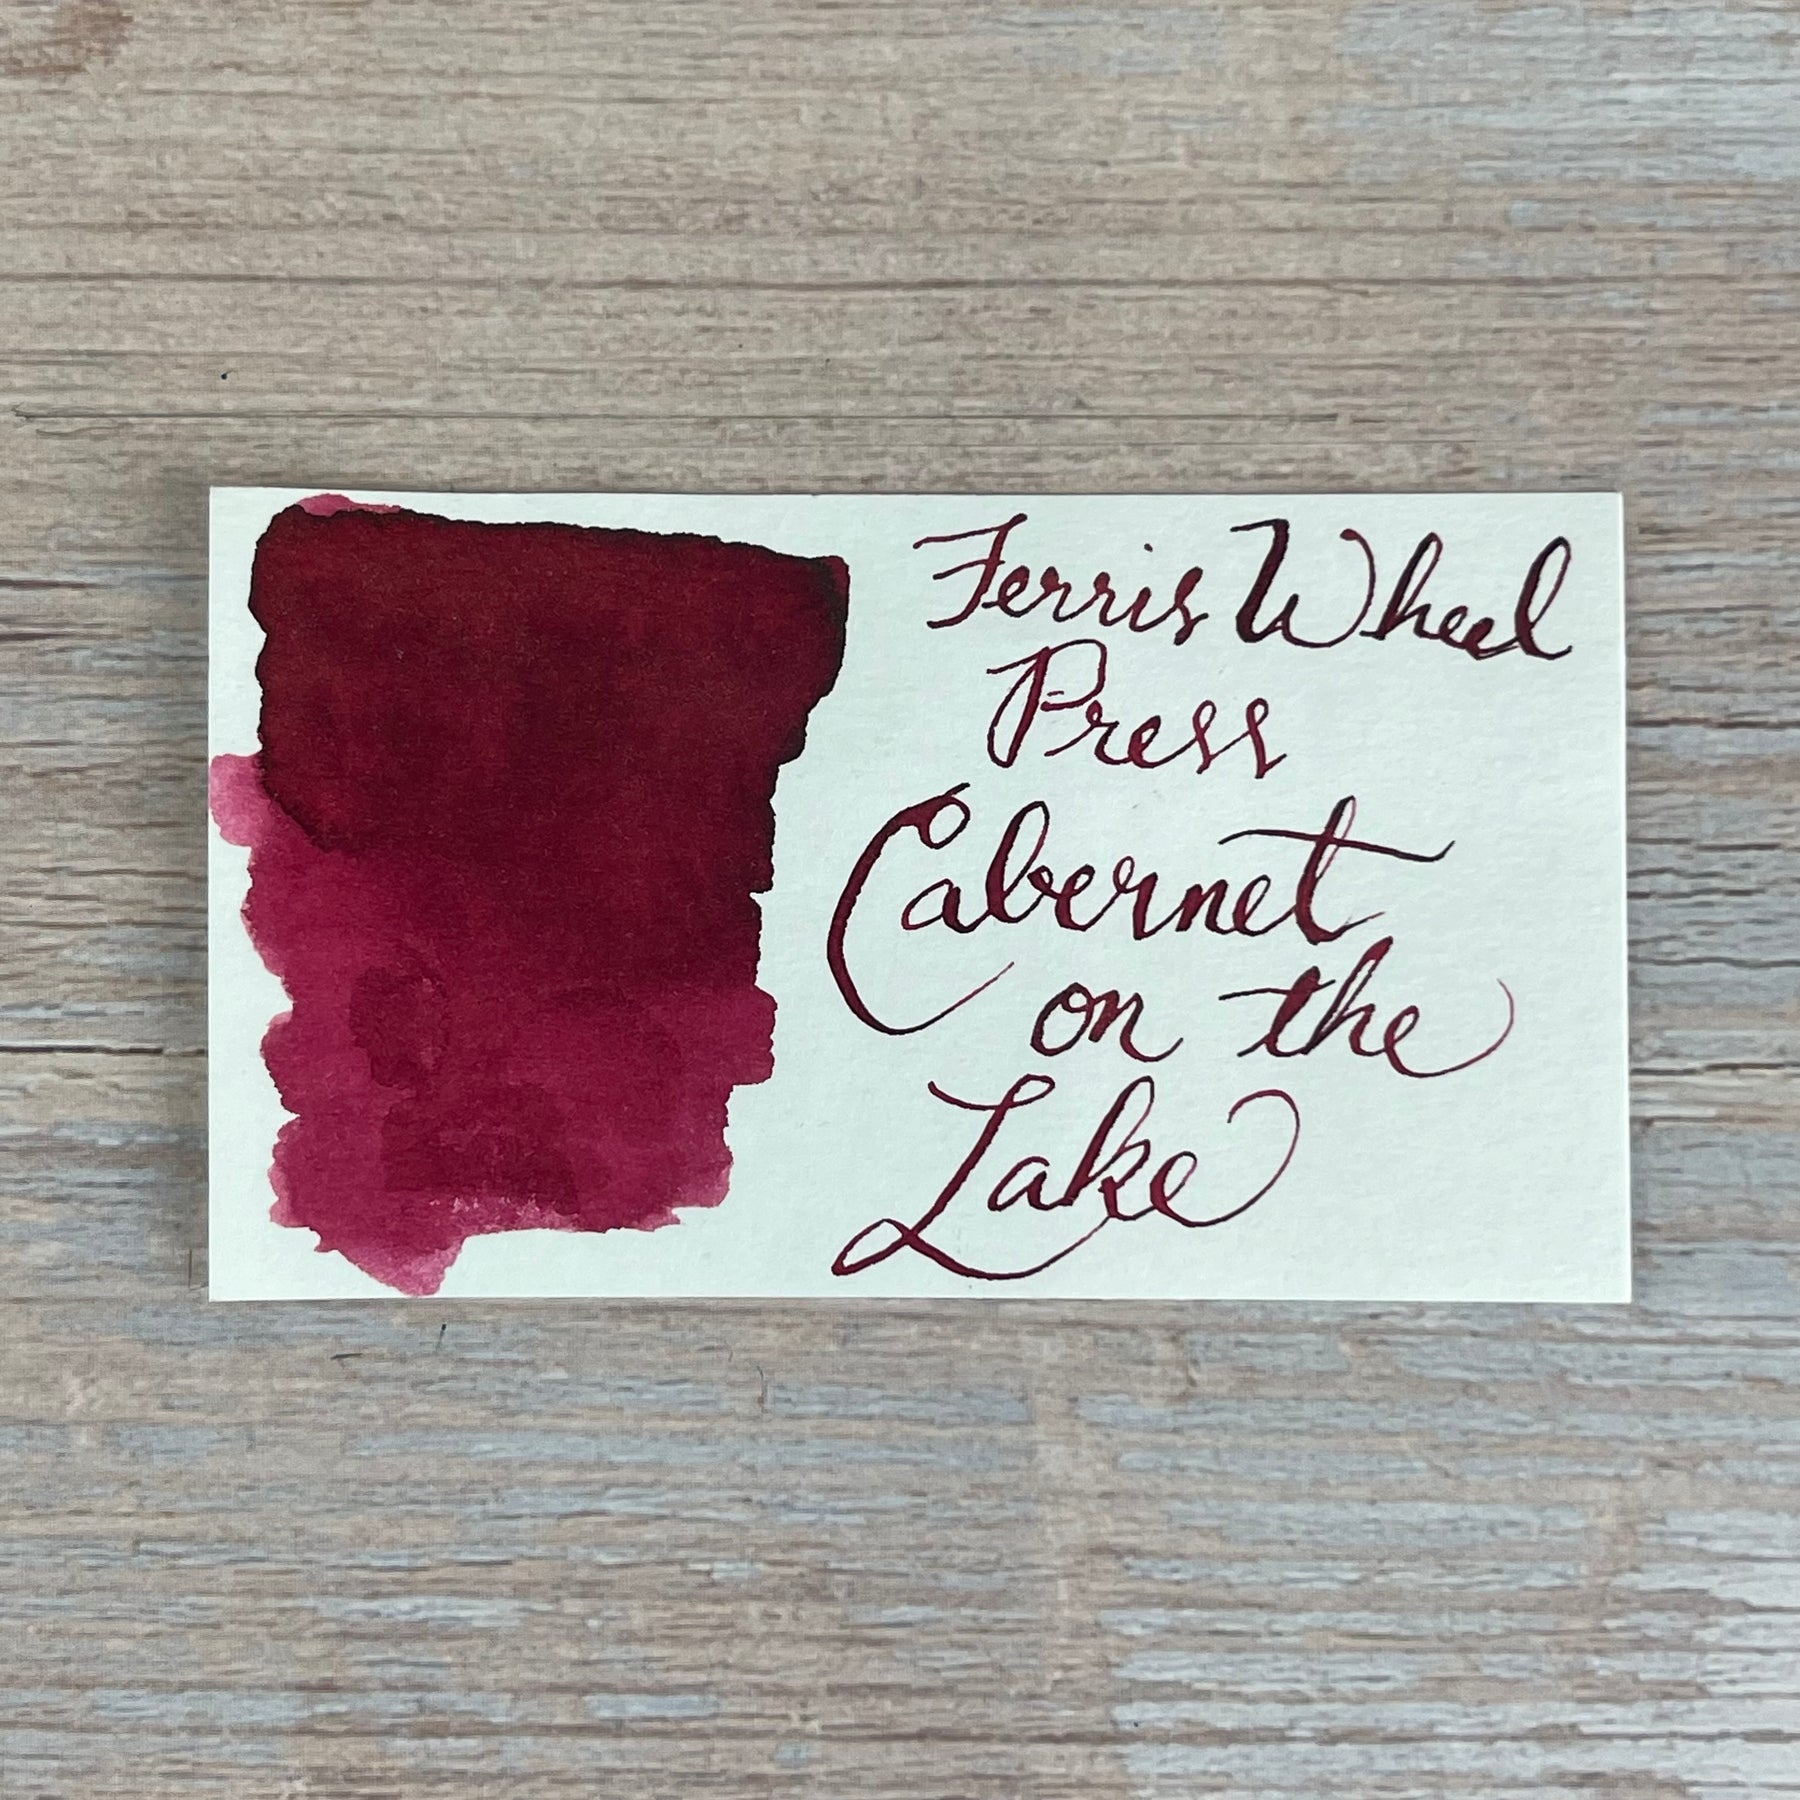 Ferris Wheel
Press
Cabernet
on the
Lake